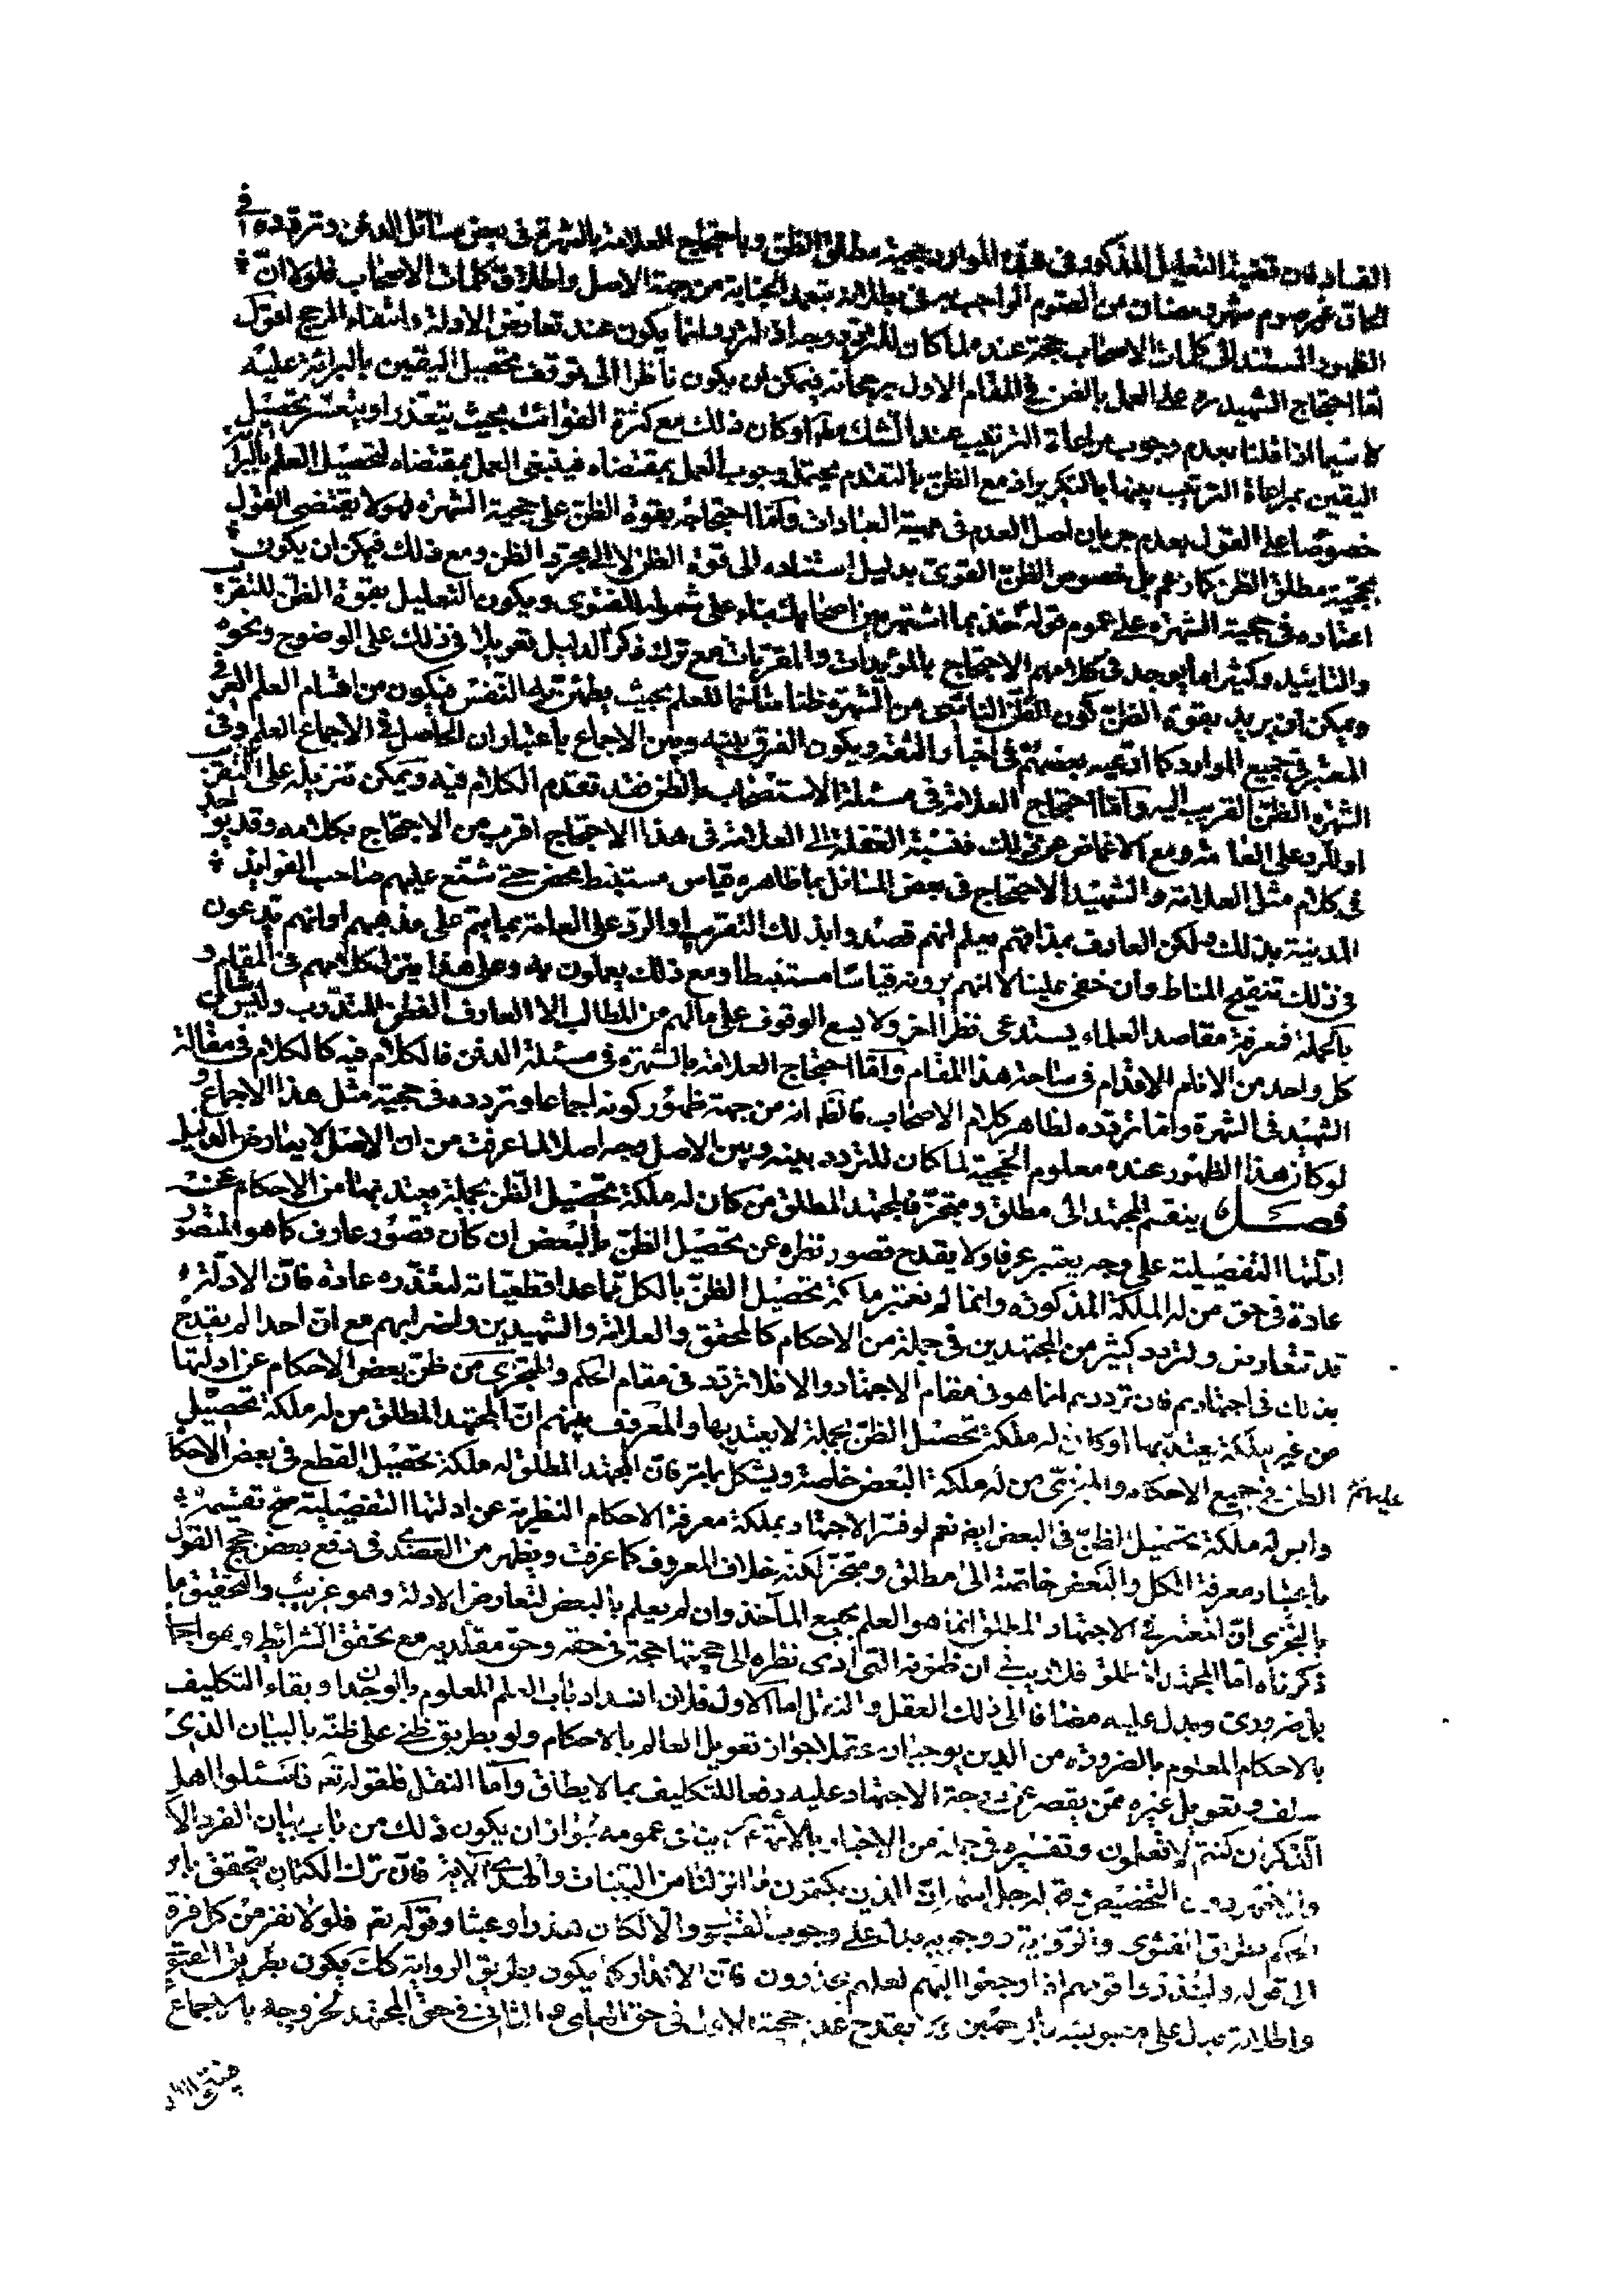 الفساد فان قضية التعليل المذكور في هذه الموارد حجية مطلق الظن وباحتجاج العلامة بالشهرة في بعض مسائل الدفن وتردده في
الحاق غير صوم شهر رمضان من الصوم الواجب به في بطلانه بتعمد الجنابة من جهة الاصل واطلاق كلمات الاصحاب فلولا ان
الظهور المستند الى كلمات الاصحاب حجة عنده لما كان للتردد وجه اذ التردد انما يكون عند تعارض الادلة وانتفاء المرجح اقول
اما احتجاج الشهيد ره على العمل بالظن في المقام الاول برجحانه فيمكن ان يكون ناظرا الى توقف تحصيل اليقين بالبرائة عليه
لا سيما اذا قلنا بعدم وجوب مراعاة الترتيب عند الشك مط او كان ذلك مع كثرة الفوائت بحيث يتعذر او يتعسر تحصيل
اليقين بمراعاة الترتيب بينها بالتكرير اذ مع الظن بالتقدم يحتمل وجوب العمل بمقتضاه فينبغي العمل بمقتضاه لتحصيل العلم بالبرائة
خصوصا على القول بعدم جريان اصل العدم في مهية العبادات واما احتجاجه بقوة الظن على حجية الشهرة فهو لا يقتضي القول
بحجية مطلق الظن كما زعم بل خصوص الظن القوي بدليل استناده الى قوة الظن لا الى مجرد الظن ومع ذلك فيمكن ان يكون
اعتماده في حجية الشهرة على عموم قوله خذ بما اشتهر بين اصحابك بناء على شموله للفتوى ويكون التعليل بقوة الظن للتقريب
والتاييد وكثيرا ما يوجد في كلامهم الاحتجاج بالمؤيدات والمقربات مع ترك ذكر الدليل تعويلا في ذلك على الوضوح ونحوه
ويمكن ان يريد بقوة الظن كون الظن الناشي من الشهرة ظنا متاخما للعلم بحيث يطمئن به النفس فيكون من اقسام العلم العرفي
المعتبر في جميع الموارد كما ادعيه بعضهم في اخبار الثقة ويكون الفرق بينه وبين الاجماع باعتبار ان الحاصل في الاجماع العلم وفي
الشهرة الظن القريب اليه واما احتجاج العلامة في مسئلة الاستصحاب بالظن فقد تقدم الكلام فيه ويمكن تنزيله على التقريب
او الرد على العامة ومع الاغماض عن ذلك فنسبة الغفلة الى العلامة في هذا الاحتجاج اقرب من الاحتجاج بكلامه وقد يوجد
في كلام مثل العلامة والشهيد الاحتجاج في بعض المسائل بما ظاهره قياس مستنبط محض حتى شنع عليهم صاحب الفوائد
المدنية بذلك ولكن العارف بمذاقهم يعلم انهم قصدوا بذلك التقريب او الرد على العامة بما يتم على مذهبهم او انهم يدعون
في ذلك تنقيح المناط وان خفي علينا لا انهم يرونه قياسا مستنبطا ومع ذلك يعملون به وعلى هذا ينزل كلامهم في المقام و
بالجملة فمعرفة مقاصد العلماء يستدعي نظرا اخر ولا يسع الوقوف على ما لهم من المطالب الا العارف الفطن المتدرب وليس لكل
كل واحد من الانام الاقدام في ساحة هذا المقام واما احتجاج العلامة بالشهرة في مسئلة الدفن فالكلام فيه كالكلام في مقالة
الشهيد في الشهرة واما تردده لظاهر كلام الاصحاب فالظ انه من جهة ظهور كونه اجماعا وتردده في حجية مثل هذا الاجماع و
لو كان هذا الظهور عنده معلوم الحجية لما كان للتردد بينه وبين الاصل وجه اصلا لما عرفت من ان الاصل لا يعارض الدليل
فصل ينقسم المجتهد الى مطلق ومتجز فالمجتهد المطلق من كان له ملكة تحصيل الظن بجملة يعتد بها من الاحكام عن
ادلتها التفصيلية على وجه يعتبر عرفا ولا يقدح قصور نظره عن تحصيل الظن بالبعض ان كان قصور عارف كما هو المتصور
عادة في حق من له الملكة المذكورة وانما لم نعتبر ملكة تحصيل الظن بالكل مما عدا قطعياته لتعذره عادة فان الادلة
قد تتعارض ولتردد كثير من المجتهدين في جملة من الاحكام كالمحقق والعلامة والشهيدين واضرابهم مع ان احدا لم يقدح
بذلك في اجتهادهم فان ترددهم انما هو في مقام الاجتهاد والا فلا تردد في مقام الحكم والمتجزي من ظن بعض الاحكام عن ادلتها
من غير ملكة يعتد بها او كان له ملكة تحصيل الظن بجملة لا يعتد بها والمعروف بينهم ان المجتهد المطلق من له ملكة تحصيل
الظن في جميع الاحكام والمتجزي من له ملكة البعض خاصة ويشكل بما مر فان المجتهد المطلق له ملكة تحصيل القطع في بعض الاحكام
وليس له ملكة تحصيل الظن في البعض ايض نعم لو فسر الاجتهاد بملكة معرفة الاحكام النظرية عن ادلتها التفصيلية صح تقسيمه
باعتبار معرفة الكل والبعض خاصة الى مطلق ومتجز لكنه خلاف المعروف كما عرفت ويظهر من العضدي في دفع بعض حجج القول
بالتجزي ان المعتبر في الاجتهاد المطلق انما هو العلم بجميع المآخذ وان لم يعلم بالبعض لتعارض الادلة وهو غريب والتحقيق ما
ذكرناه اما المجتهد المطلق فلا ريب في ان ظنونه التي ادى نظره الى حجيتها حجة في حقه وحق مقلديه مع تحقق الشرائط وهو اجماعي
بل ضروري ويدل عليه مضافا الى ذلك العقل والنقل اما الاول فلان انسداد باب العلم المعلوم بالوجدان وبقاء التكليف
بالاحكام المعلوم بالضرورة من الدين يوجبان عقلا جواز تعويل العالم بالاحكام ولو بطريق ظني على ظنه بالبيان الذي
سلف وتعويل غيره ممن يقصر عن درجة الاجتهاد عليه دفعا للتكليف بما لا يطاق واما النقل فلقوله تعه فاسئلوا اهل
الذكر ان كنتم لا تعلمون وتفسيره في جملة من الاخبار بالائمة ع لا ينافي عمومه لجواز ان يكون ذلك من باب بيان الفرد الا
التخصيص وقوله جل اسمه ان الذين يكتمون ما انزلنا من البينات والهدى الاية فان ترك الكتمان يتحقق بابراز
الحكم بطريق الفتوى والرواية ووجوبه يدل على وجوب القبول والا لكان هذرا وعبثا وقوله تعه فلولا نفر من كل فرقة
الى قوله ولينذروا قومهم اذا رجعوا اليهم لعلهم يحذرون فان الانذار كما يكون بطريق الرواية كك يكون بطريق الفتوى
واطلاقه يدل على مطلوبيته بالوجهين ولا يقدح عدم حجية الاول في حق العامي والثاني في حق المجتهد لخروجه بالاجماع